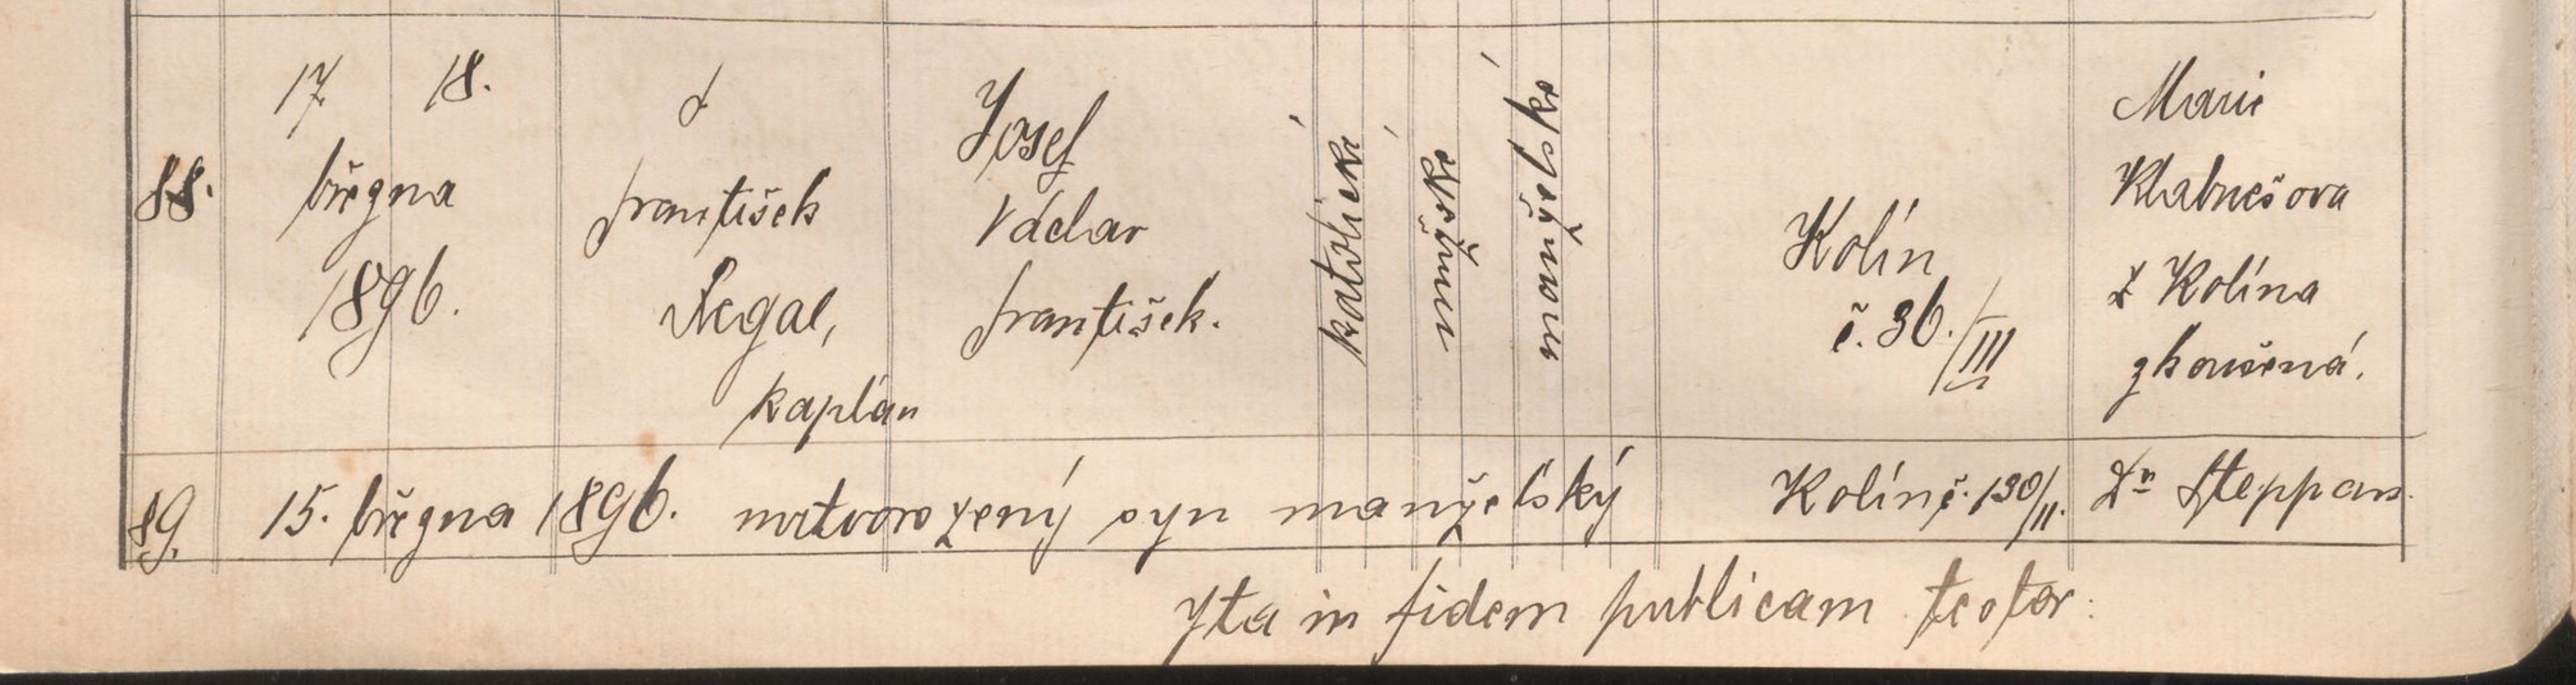 88.
17. 18.
března
1896.
d
František
Regal,
kaplan
Josef
Václav
František.
katolické
mužské
manželské
Kolín
č. 36./III
Marie
z Kolína
zkoušená.
89. 15. března 1896. mrtvorozený syn manželský Kolín č. 130/II. Dr Steppan.
Ita in fidem publicam testor: